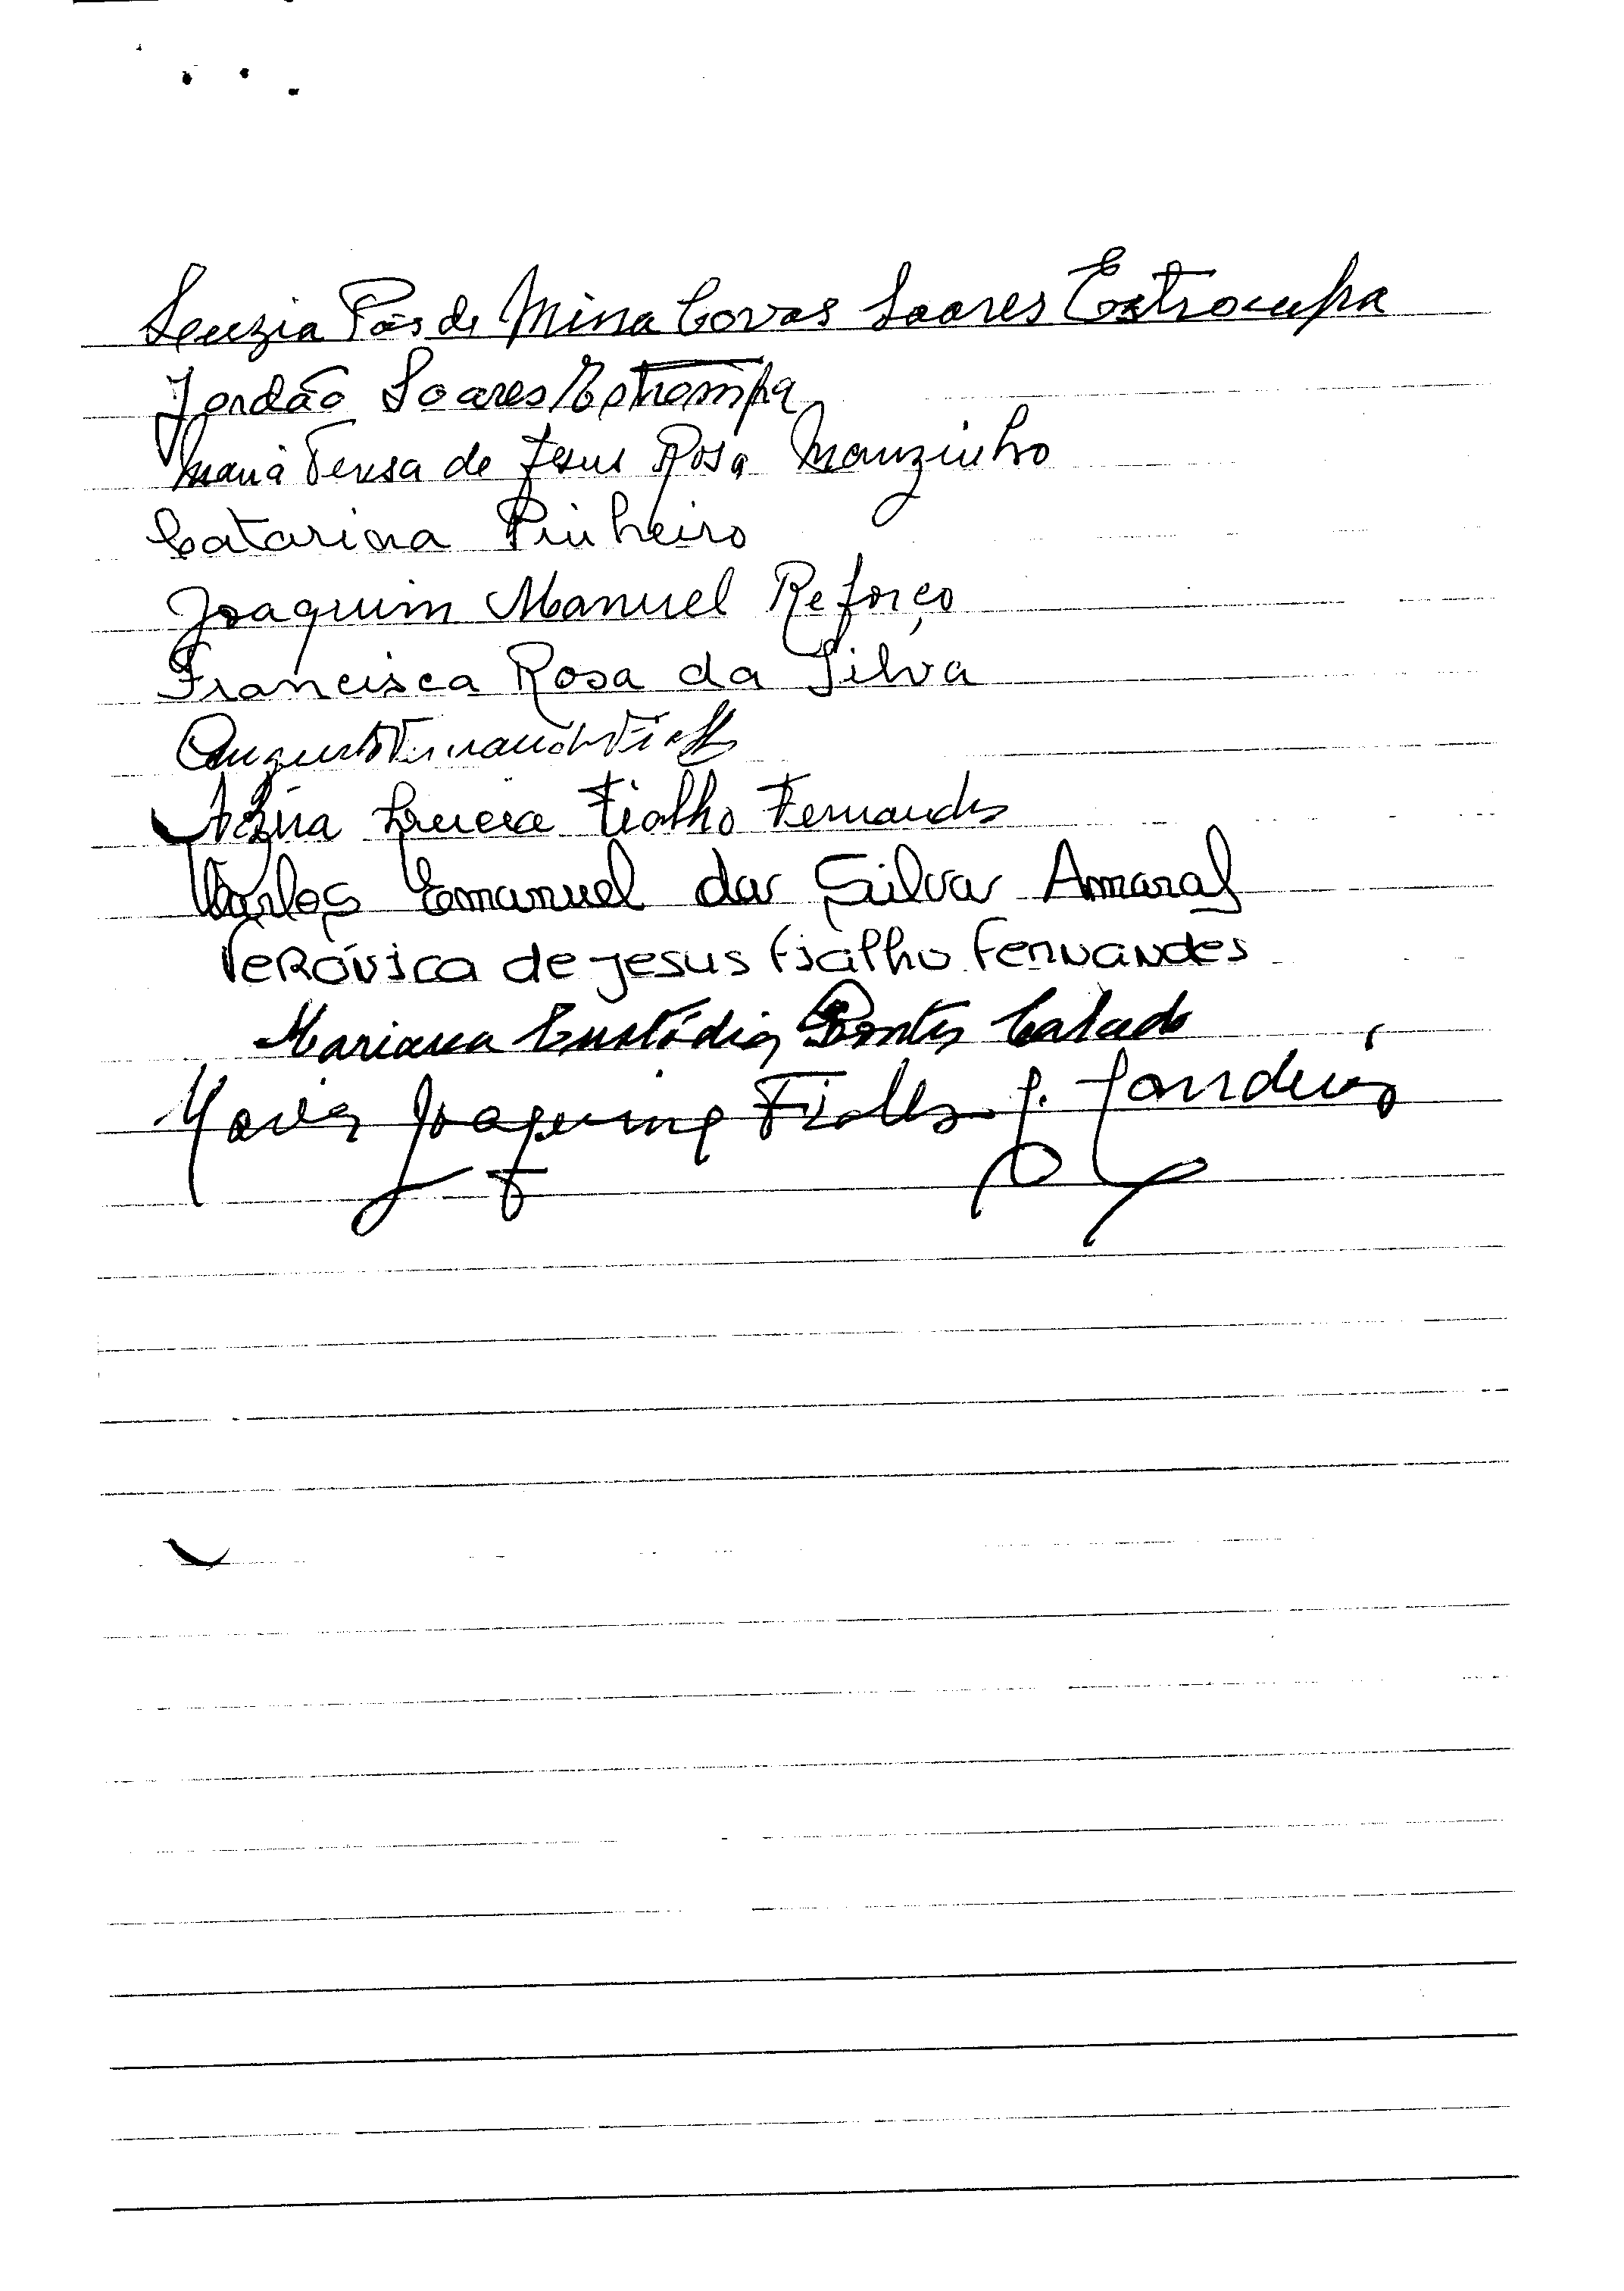 Luzia Pás de Mina Covas Soares Estrocupa
Jordão Soares Estrompa
Maria Teresa de Jesus Rosa Mouzinho
Catarina Pinheiro
Joaquim Manuel Reforço
Francisca Rosa da Silva
Augusto Fernandes
Lucia Fialho Fernandes
Carlos Emanuel da Silva Amaral
Verónica de jesus fialho fernandes
Mariana Custódia Pontes Calado
Maria Joaquina Fialho